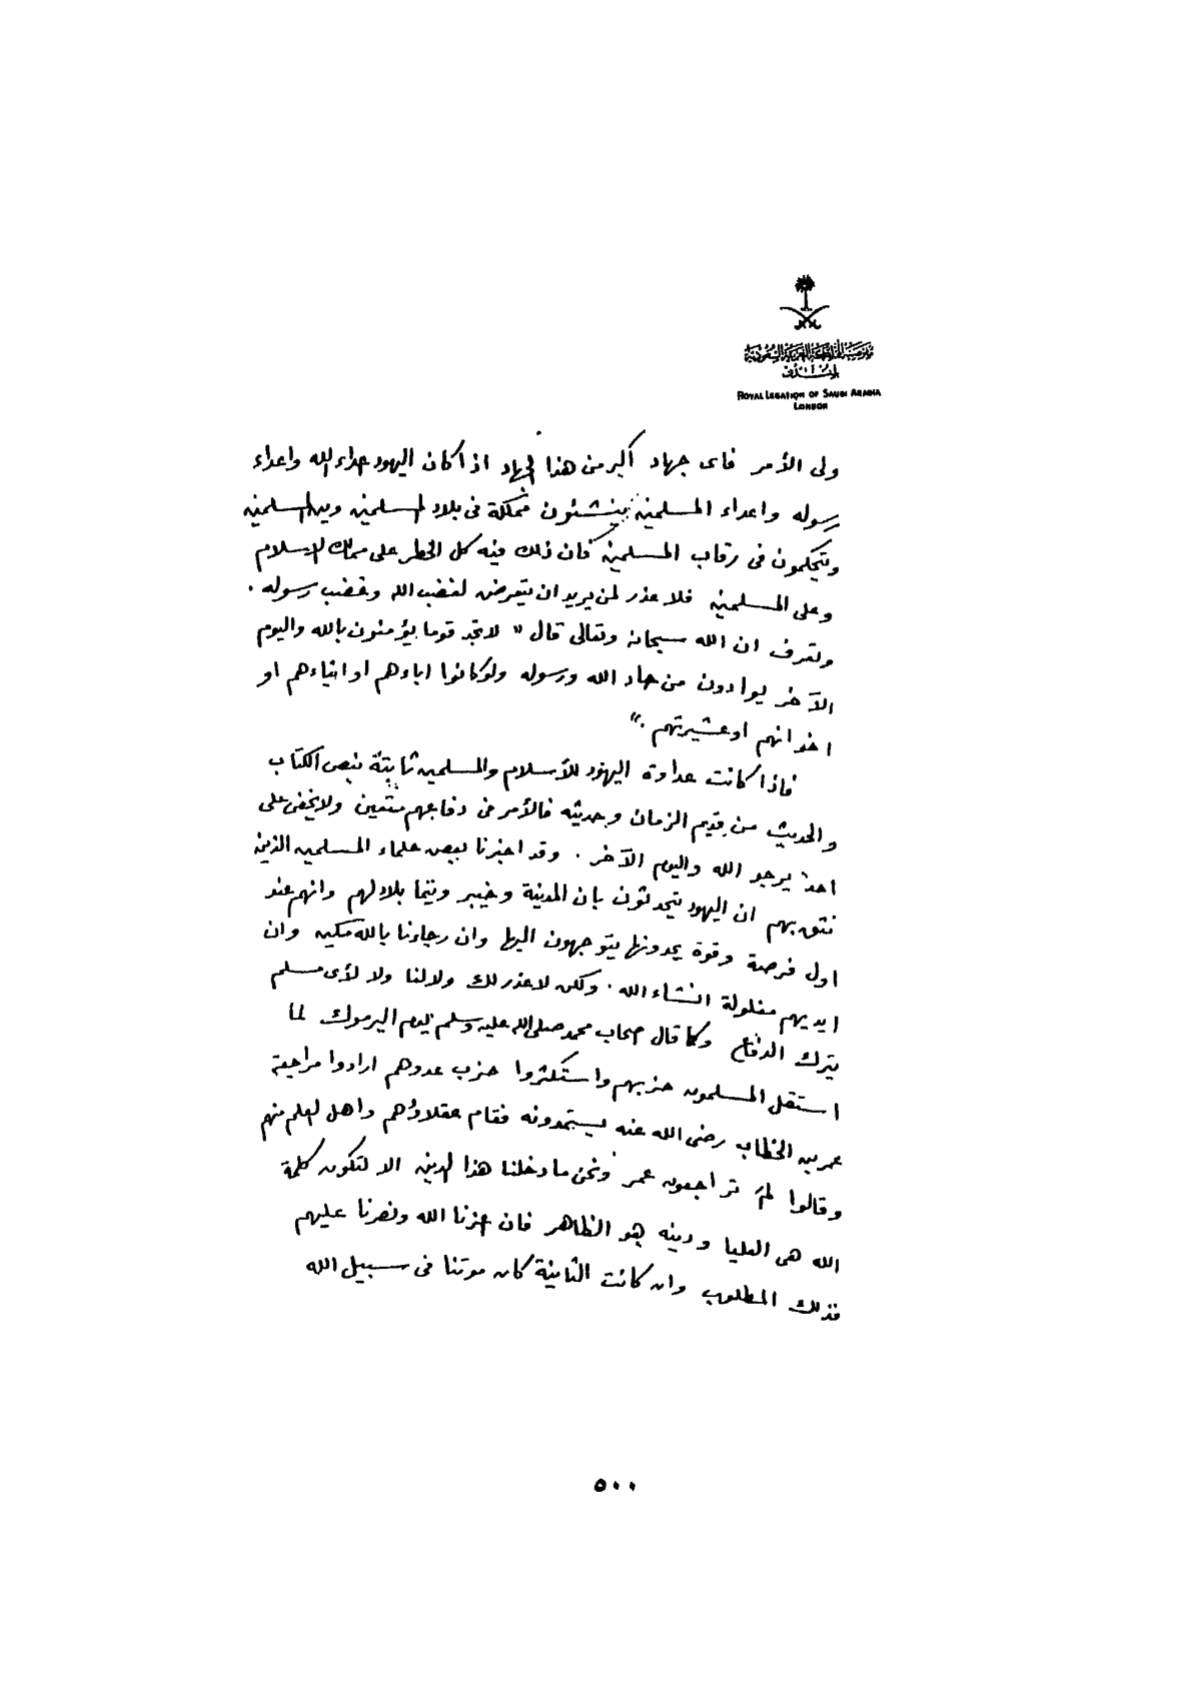 المملكة العربية السعودية
لندن
ROYAL LEGATION OF SAUDI ARABIA
LONDON
ولى الأمر فاى جهاد أكبر من هذا الجهاد اذا كان اليهود اعداء الله واعداء
رسوله واعداء المسلمين ينشئون مملكة فى بلاد المسلمين وبين المسلمين
ويتحكمون فى رقاب المسلمين فان ذلك فيه كل الخطر على ممالك الاسلام
وعلى المسلمين فلا عذر لمن يريد ان يتعرض لغضب الله وغضب رسوله .
ولتعرف ان الله سبحانه وتعالى قال " لا تجد قوما يؤمنون بالله واليوم
الآخر يوادون من حاد الله ورسوله ولو كانوا اباءهم او ابناءهم او
اخوانهم او عشيرتهم . "
فاذا كانت عداوة اليهود للأسلام والمسلمين ثابتة بنص الكتاب
والحديث من قديم الزمان وحديثه فالأمر فى دفاعهم متعين ولا يخفى على
احد يرجو الله واليوم الآخر . وقد اخبرنا بعض علماء المسلمين الذين
نثق بهم ان اليهود يتحدثون بان المدينة وخيبر وتيما بلاد لهم وانهم عند
اول فرصة وقوة يجدونها يتوجهون اليها وان رجاءنا بالله مكين وان
ايديهم مغلولة انشاء الله . ولكن لا عذر لك ولا لنا ولا لأى مسلم
بترك الدفاع وكما قال اصحاب محمد صلى الله عليه وسلم يوم اليرموك لما
استقل المسلمون حزبهم واستكثروا حزب عدوهم ارادوا مراجعة
عمر بن الخطاب رضى الله عنه يستمدونه فقام عقلاؤهم واهل العلم منهم
وقالوا لم تراجعون عمر ونحن ما دخلنا هذا الدين الا لتكون كلمة
الله هى العليا ودينه هو الظاهر فان اعزنا الله ونصرنا عليهم
فذلك المطلوب وان كانت الثانية كان موتنا فى سبيل الله
٥٠٠